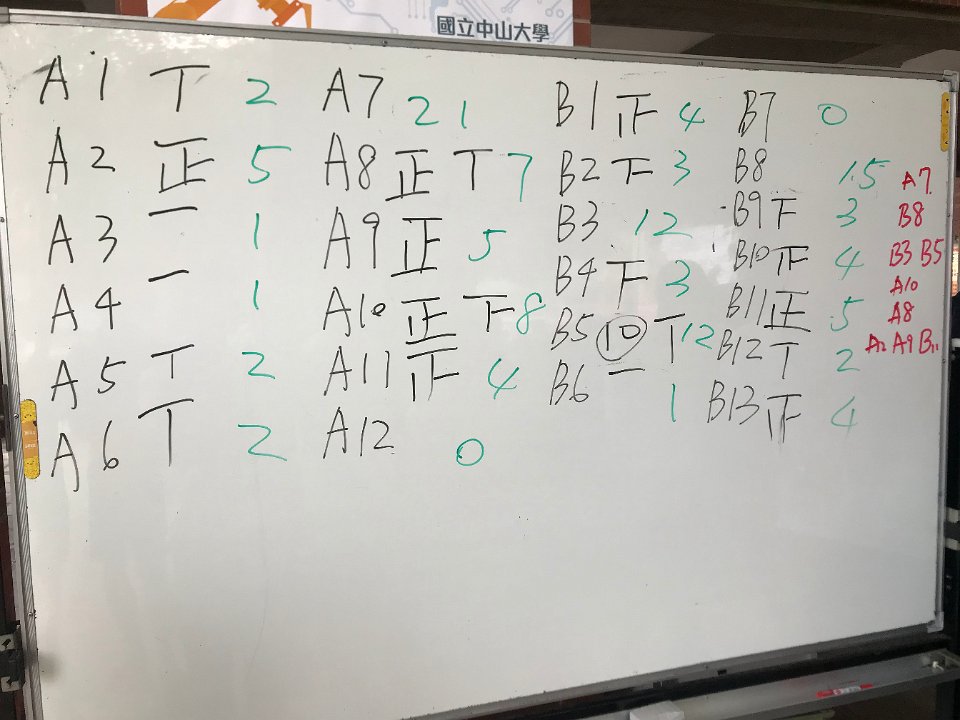 國立中山大學
A1 T 2
A2 正 5
A3 一 1
A4 一 1
A5 T 2
A6 T 2
A7 21
A8 正 T 7
A9 正 5
A10 正 下 8
A11 正 4
A12 0
B1 正 4
B2 下 3
B3 12
B4 下 3
B5 10 T 12
B6 一 1
B7 0
B8 15
B9 下 3
B10 正 4
B11 正 5
B12 T 2
B13 正 4
A7
B8
B3 B5
A10
A8
A2 A9 B11